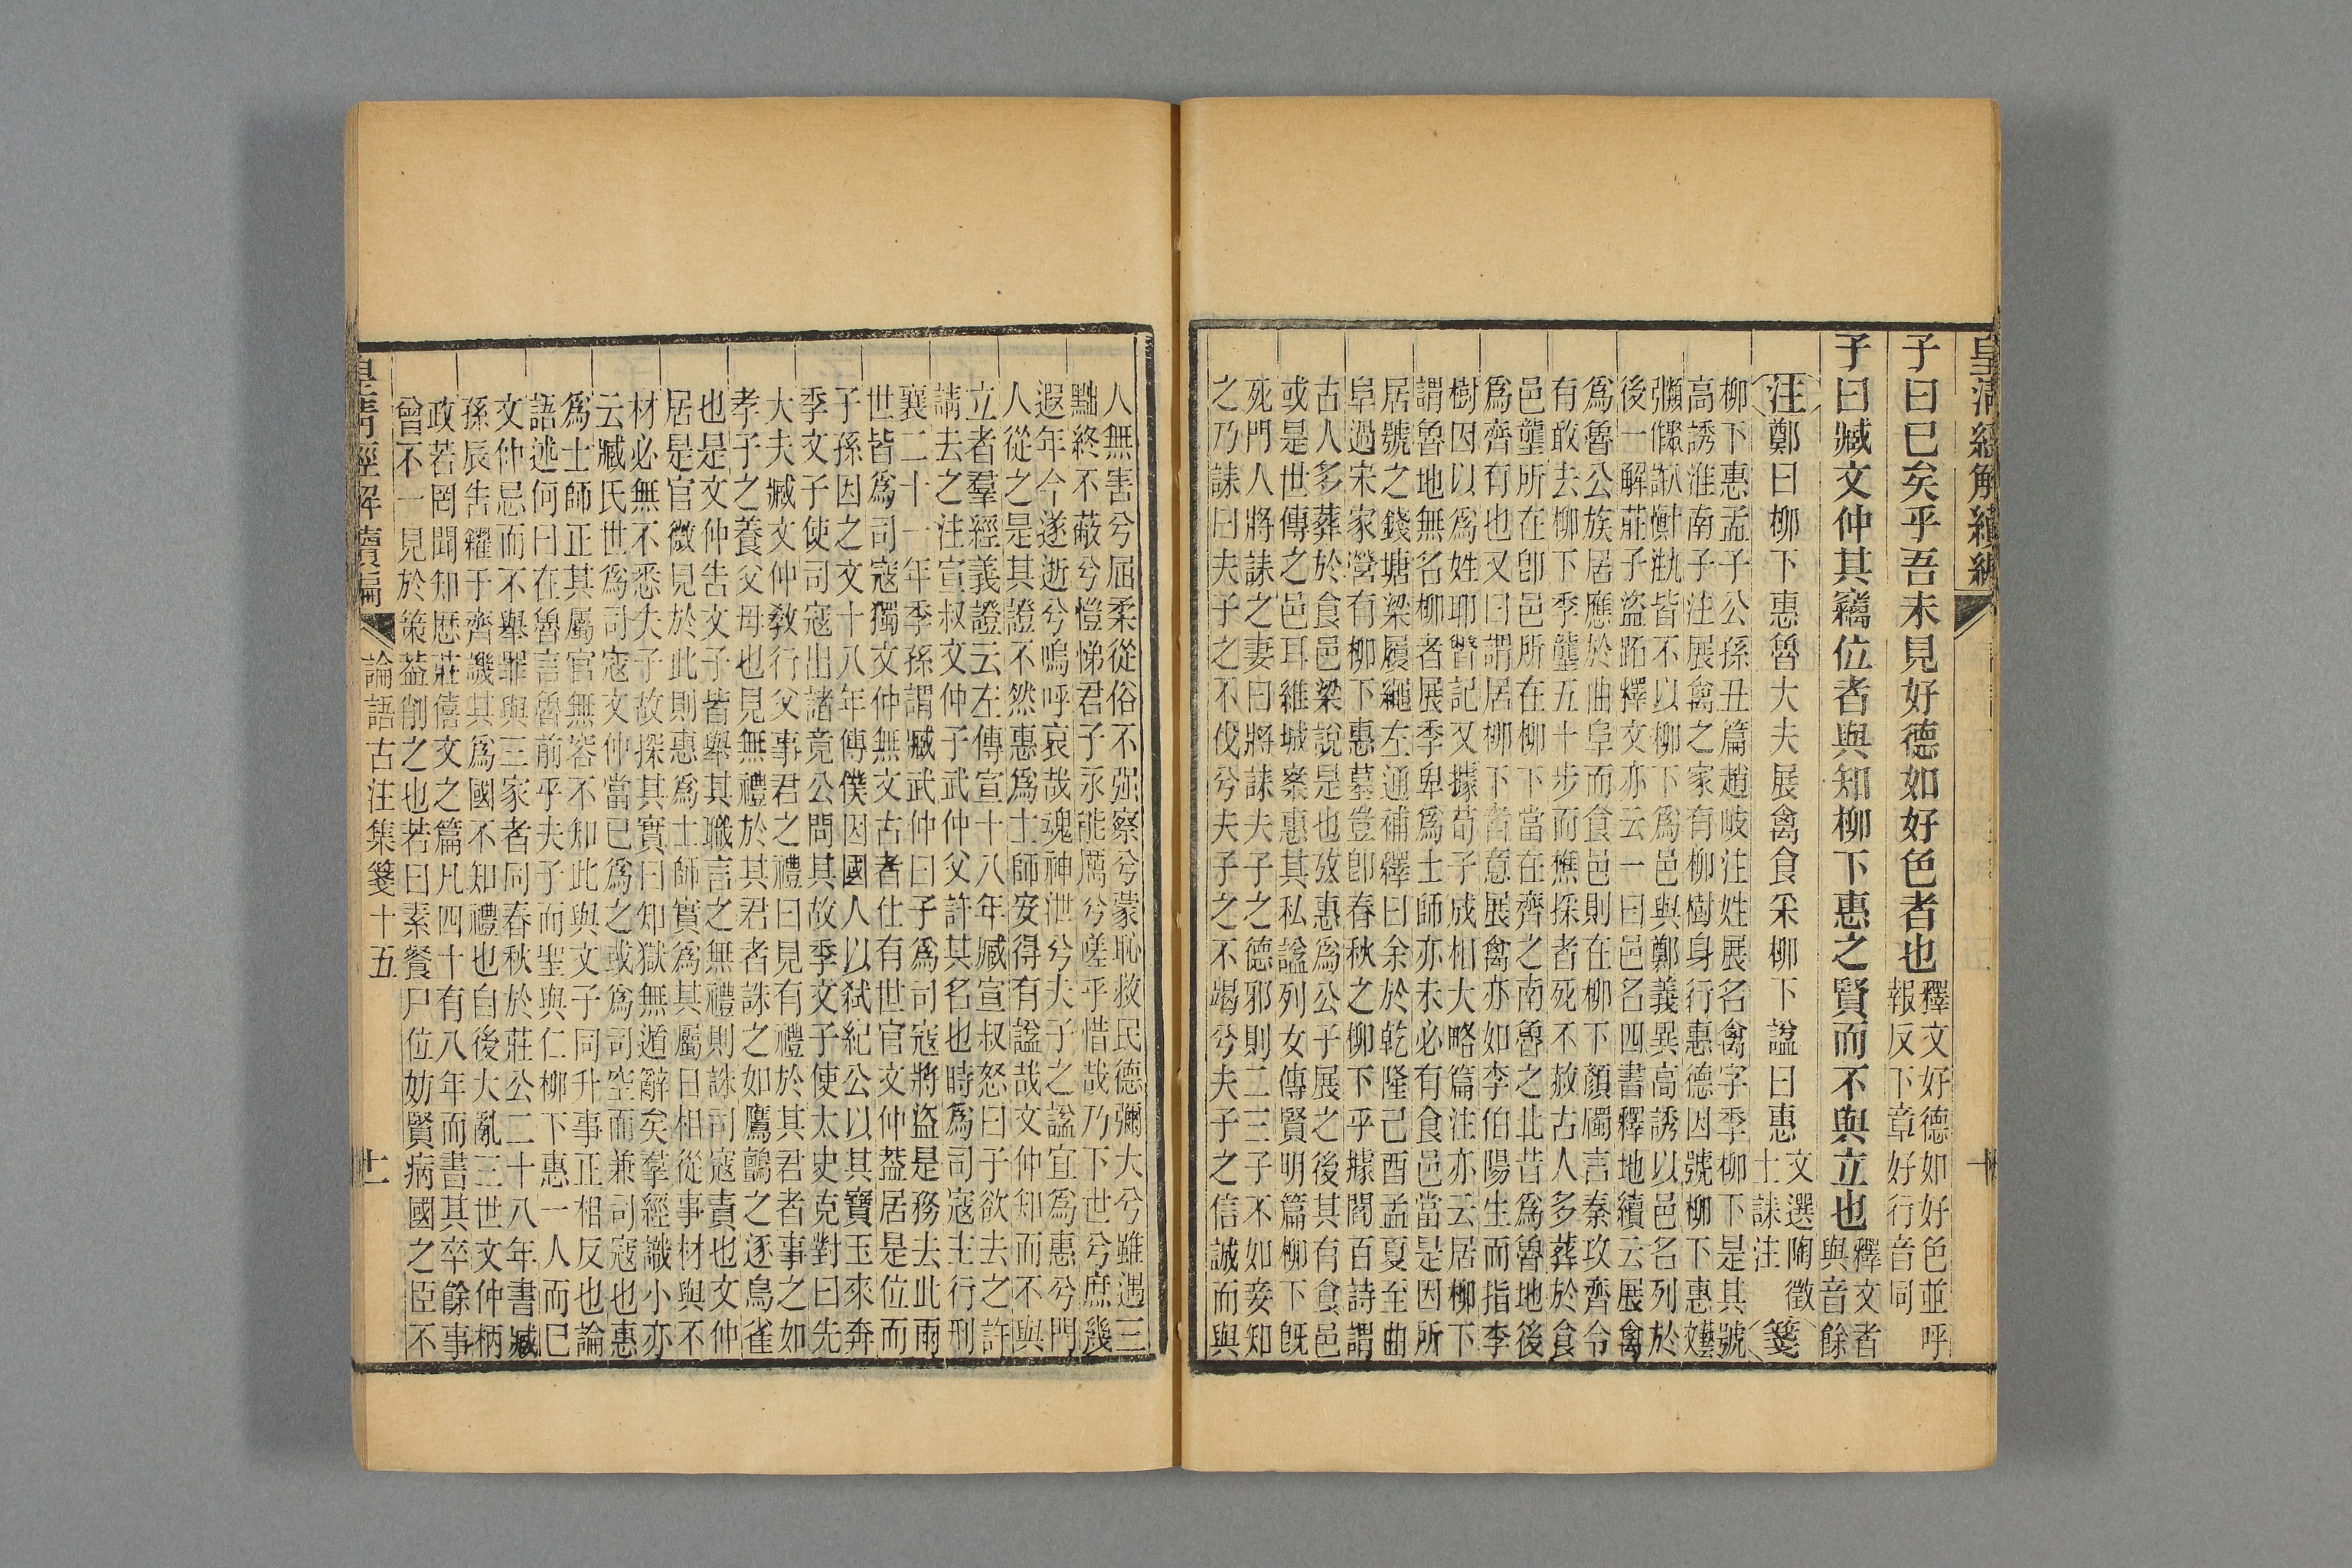 皇清經解續編
十
子曰已矣乎吾未見好德如好色者也釋文好德如好色並呼
報反下章好行音同
子曰臧文仲其竊位者與知柳下惠之賢而不與立也釋文者
與音餘
注鄭曰柳下惠魯大夫展禽食采柳下諡曰惠文選陶徵
士誄注
箋
柳下惠孟子公孫丑篇趙岐注姓展名禽字季柳下是其號
高誘淮南子注展禽之家有柳樹身行惠德因號柳下惠藝
皆不以柳下爲邑與鄭義異高誘以邑名列於
後一解莊子盜跖釋文亦云一曰邑名四書釋地續云展禽
爲魯公族居應於曲阜而食邑則在柳下顏斶言秦攻齊令
有敢去柳下季壟五十步而樵採者死不赦古人多葬於食
邑壟所在卽邑所在柳下當在齊之南魯之北昔爲魯地後
爲齊有也又曰謂居柳下者意展禽亦如李伯陽生而指李
樹因以爲姓耶暬記又據荀子成相大略篇注亦云居柳下
謂魯地無名柳者展季卑爲士師亦未必有食邑當是因所
居號之錢塘梁履繩左通補釋曰余於乾隆己酉孟夏至曲
阜過宋家營有柳下惠墓豈卽春秋之柳下乎據閻百詩謂
古人多葬於食邑梁說是也攷惠爲公子展之後其有食邑
或是世傳之邑耳維城案惠其私諡列女傳賢明篇柳下旣
死門人將誄之妻曰將誄夫子之德邪則二三子不如妾知
之乃誄曰夫子之不伐兮夫子之不竭兮夫子之信誠而與
人無害兮屈柔從俗不强察兮蒙恥救民德彌大兮雖遇三
黜終不蔽兮愷悌君子永能厲兮嗟乎惜哉乃下世兮庶幾
遐年今遂逝兮嗚呼哀哉魂神泄兮夫子之諡宜爲惠兮門
人從之是其證不然惠爲士師安得有諡哉文仲知而不與
立者羣經義證云左傳宣十八年臧宣叔怒曰子欲去之許
請去之注宣叔文仲子武仲父許其名也時爲司寇主行刑
襄二十一年季孫謂臧武仲曰子爲司寇將盜是務去此雨
世皆爲司寇獨文仲無文古者仕有世官文仲葢居是位而
子孫因之文十八年傳僕因國人以弑紀公以其寶玉來奔
季文子使司寇出諸竟公問其故季文子使太史克對曰先
大夫臧文仲敎行父事君之禮曰見有禮於其君者事之如
孝子之養父母也見無禮於其君者誅之如鷹鸇之逐鳥雀
也是文仲吿文子皆舉其職言之無禮則誅司寇責也文仲
居是官微見於此則惠爲士師實爲其屬曰相從事材與不
材必無不悉夫子故探其實曰知獄無遁辭矣羣經識小亦
云臧氏世爲司寇文仲當已爲之或爲司空而兼司寇也惠
爲士師正其屬官無容不知此與文子同升事正相反也論
語述何曰在魯言魯前乎夫子而聖與仁柳下惠一人而已
文仲忌而不舉罪與三家者同春秋於莊公二十八年書臧
孫辰吿糴于齊譏其爲國不知禮也自後大亂三世文仲柄
政若罔聞知厯莊僖文之篇凡四十有八年而書其卒餘事
曾不一見於策葢削之也若曰素餐尸位妨賢病國之臣不
皇清經解續編
論語古注集箋十五
十一